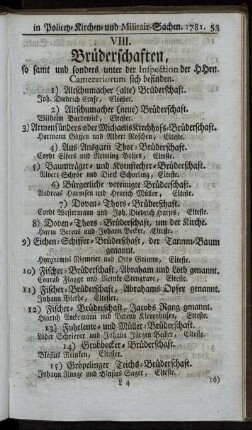 in Policey-Kirchen- und Militair-Sachen. 1781. 53
VIII.
Brüderschaften,
so samt und sonders unter der Inspection der HHrn.
Camerariorum sich befinden.
1) Altschumacher (alte) Brüderschaft.
Joh. Diedrich Ernst, Eltester.
2) Altschumacher (neue) Brüderschaft.
Wilhelm Eltester.
3) Armensünders oder Michaelis Kirchhofs-Brüderschaft.
Hermann und Albert Eltesten.
4) Aus Ansgarii Thor-Brüderschaft.
Cordt Ellers und Eltesten.
5) Baumträger- und Kornstecher-Brüderschaft.
Albert Schröe und Dirk Schorling, Eltesten.
6) Bürgerliche vereinigte Brüderschaft.
Andreas und Henrich Müller, Eltesten.
7) Doven-Thors-Brüderschaft.
Cordt Westermann und Joh. Diedrich Eltesten.
8) Doven-Thors-Brüderschaft, um der Kirche.
Harm Berens und Johann Eltesten.
9) Eichen-Schiffer-Brüderschaft, der Tannen-Baum
genannt.
Hieronimus Niemeier und Otto Grimm, Eltesten.
10) Fischer-Brüderschaft, Abraham und Loth genannt.
Conrad und Eltesten.
11) Fischer-Brüderschaft, Abrahams Opfer genannt.
Johann Eltester.
12) Fischer-Brüderschaft, Jacobs Rang genannt.
Hinrich und Berend Eltesten.
13) Fuhrleute- und Müller-Brüderschaft.
Lüder Schreiert und Johann Jürgen Eltesten.
14) Grobbecker-Brüderschaft.
Blasius Eltester.
15) Gröpelinger Teichs-Brüderschaft.
Johann Runge und Blasius Sager, Eltesten.
L 4 16)